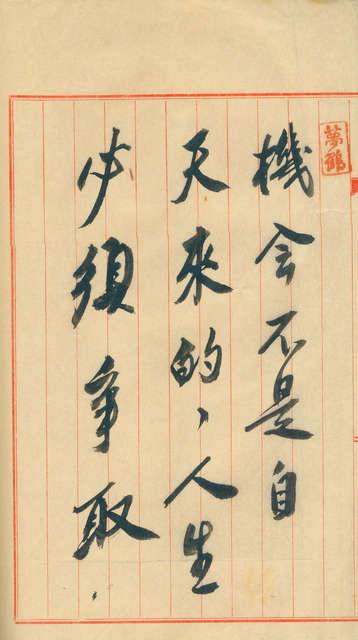 夢鶴
機会不是自
天來的，人生
必須爭取，